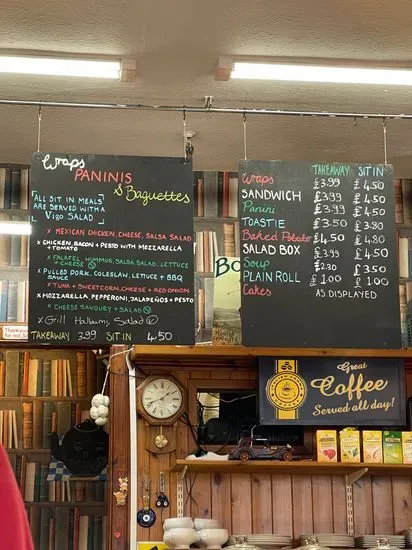 Wraps
PANINIS
& Baguettes
ALL SIT IN MEALS
ARE SERVED WITH A
Vigo SALAD
x MEXICAN CHICKEN, CHEESE, SALSA SALAD
x CHICKEN, BACON + PESTO WITH MOZZARELLA
+ TOMATO
x FALAFEL, HUMMUS, SALSA, SALAD
+ CHEESE V
x PULLED PORK, COLESLAW, LETTUCE + BBQ
SAUCE
x TUNA + SWEETCORN, CHEESE + RED ONION
x MOZZARELLA, PEPPERONI, JALAPEÑOS + PESTO
x CHEESE SAVOURY + SALAD V
x Grill Halloumi, Salad V
TAKEAWAY 3.99 SIT IN 4.50
TAKEAWAY SIT IN
Wraps £3.99 £4.50
SANDWICH £3.99 £4.50
Panini £3.99 £4.50
TOASTIE £3.50 £3.80
Baked Potato £4.50 £4.80
SALAD BOX £3.99 £4.50
Soup £2.30 £3.50
PLAIN ROLL £1.00 £1.00
Cakes AS DISPLAYED
BO
Thank you
for not
Great
Coffee
Served all day!